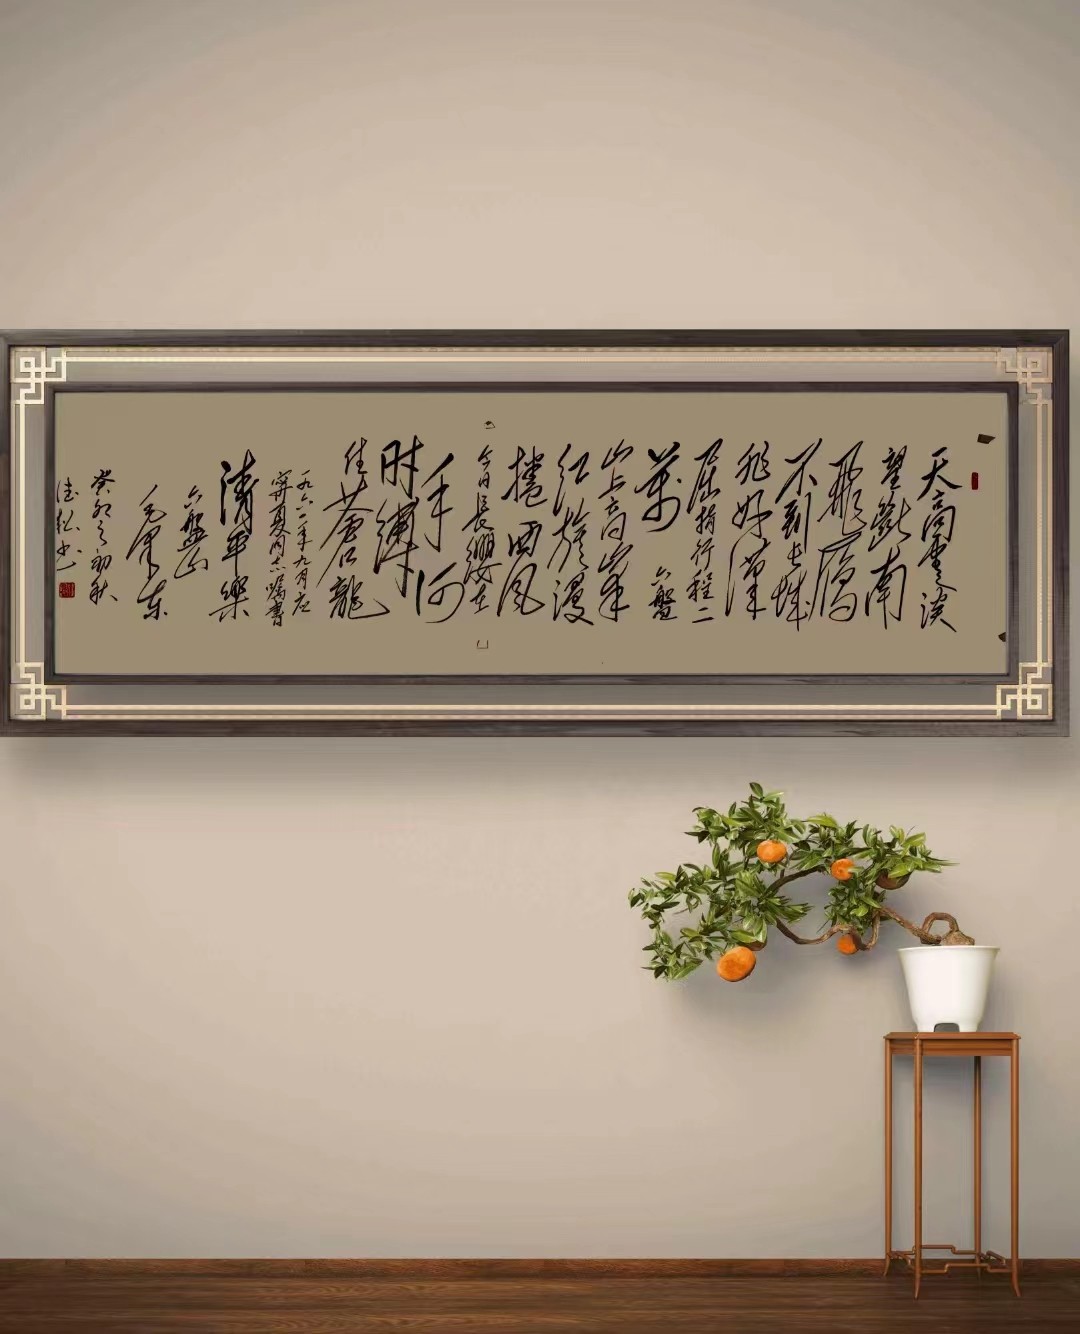 天高雲淡
望斷南
飛鴈
不到長城
非好漢
屈指行程二
萬 六盤
山上高峯
紅旗漫
捲西风
今日長纓在
手 何
时縛
住蒼龍
一九六一年九月应
寧夏同志嘱書
清平樂
六盤山
毛澤东
癸卯之初秋